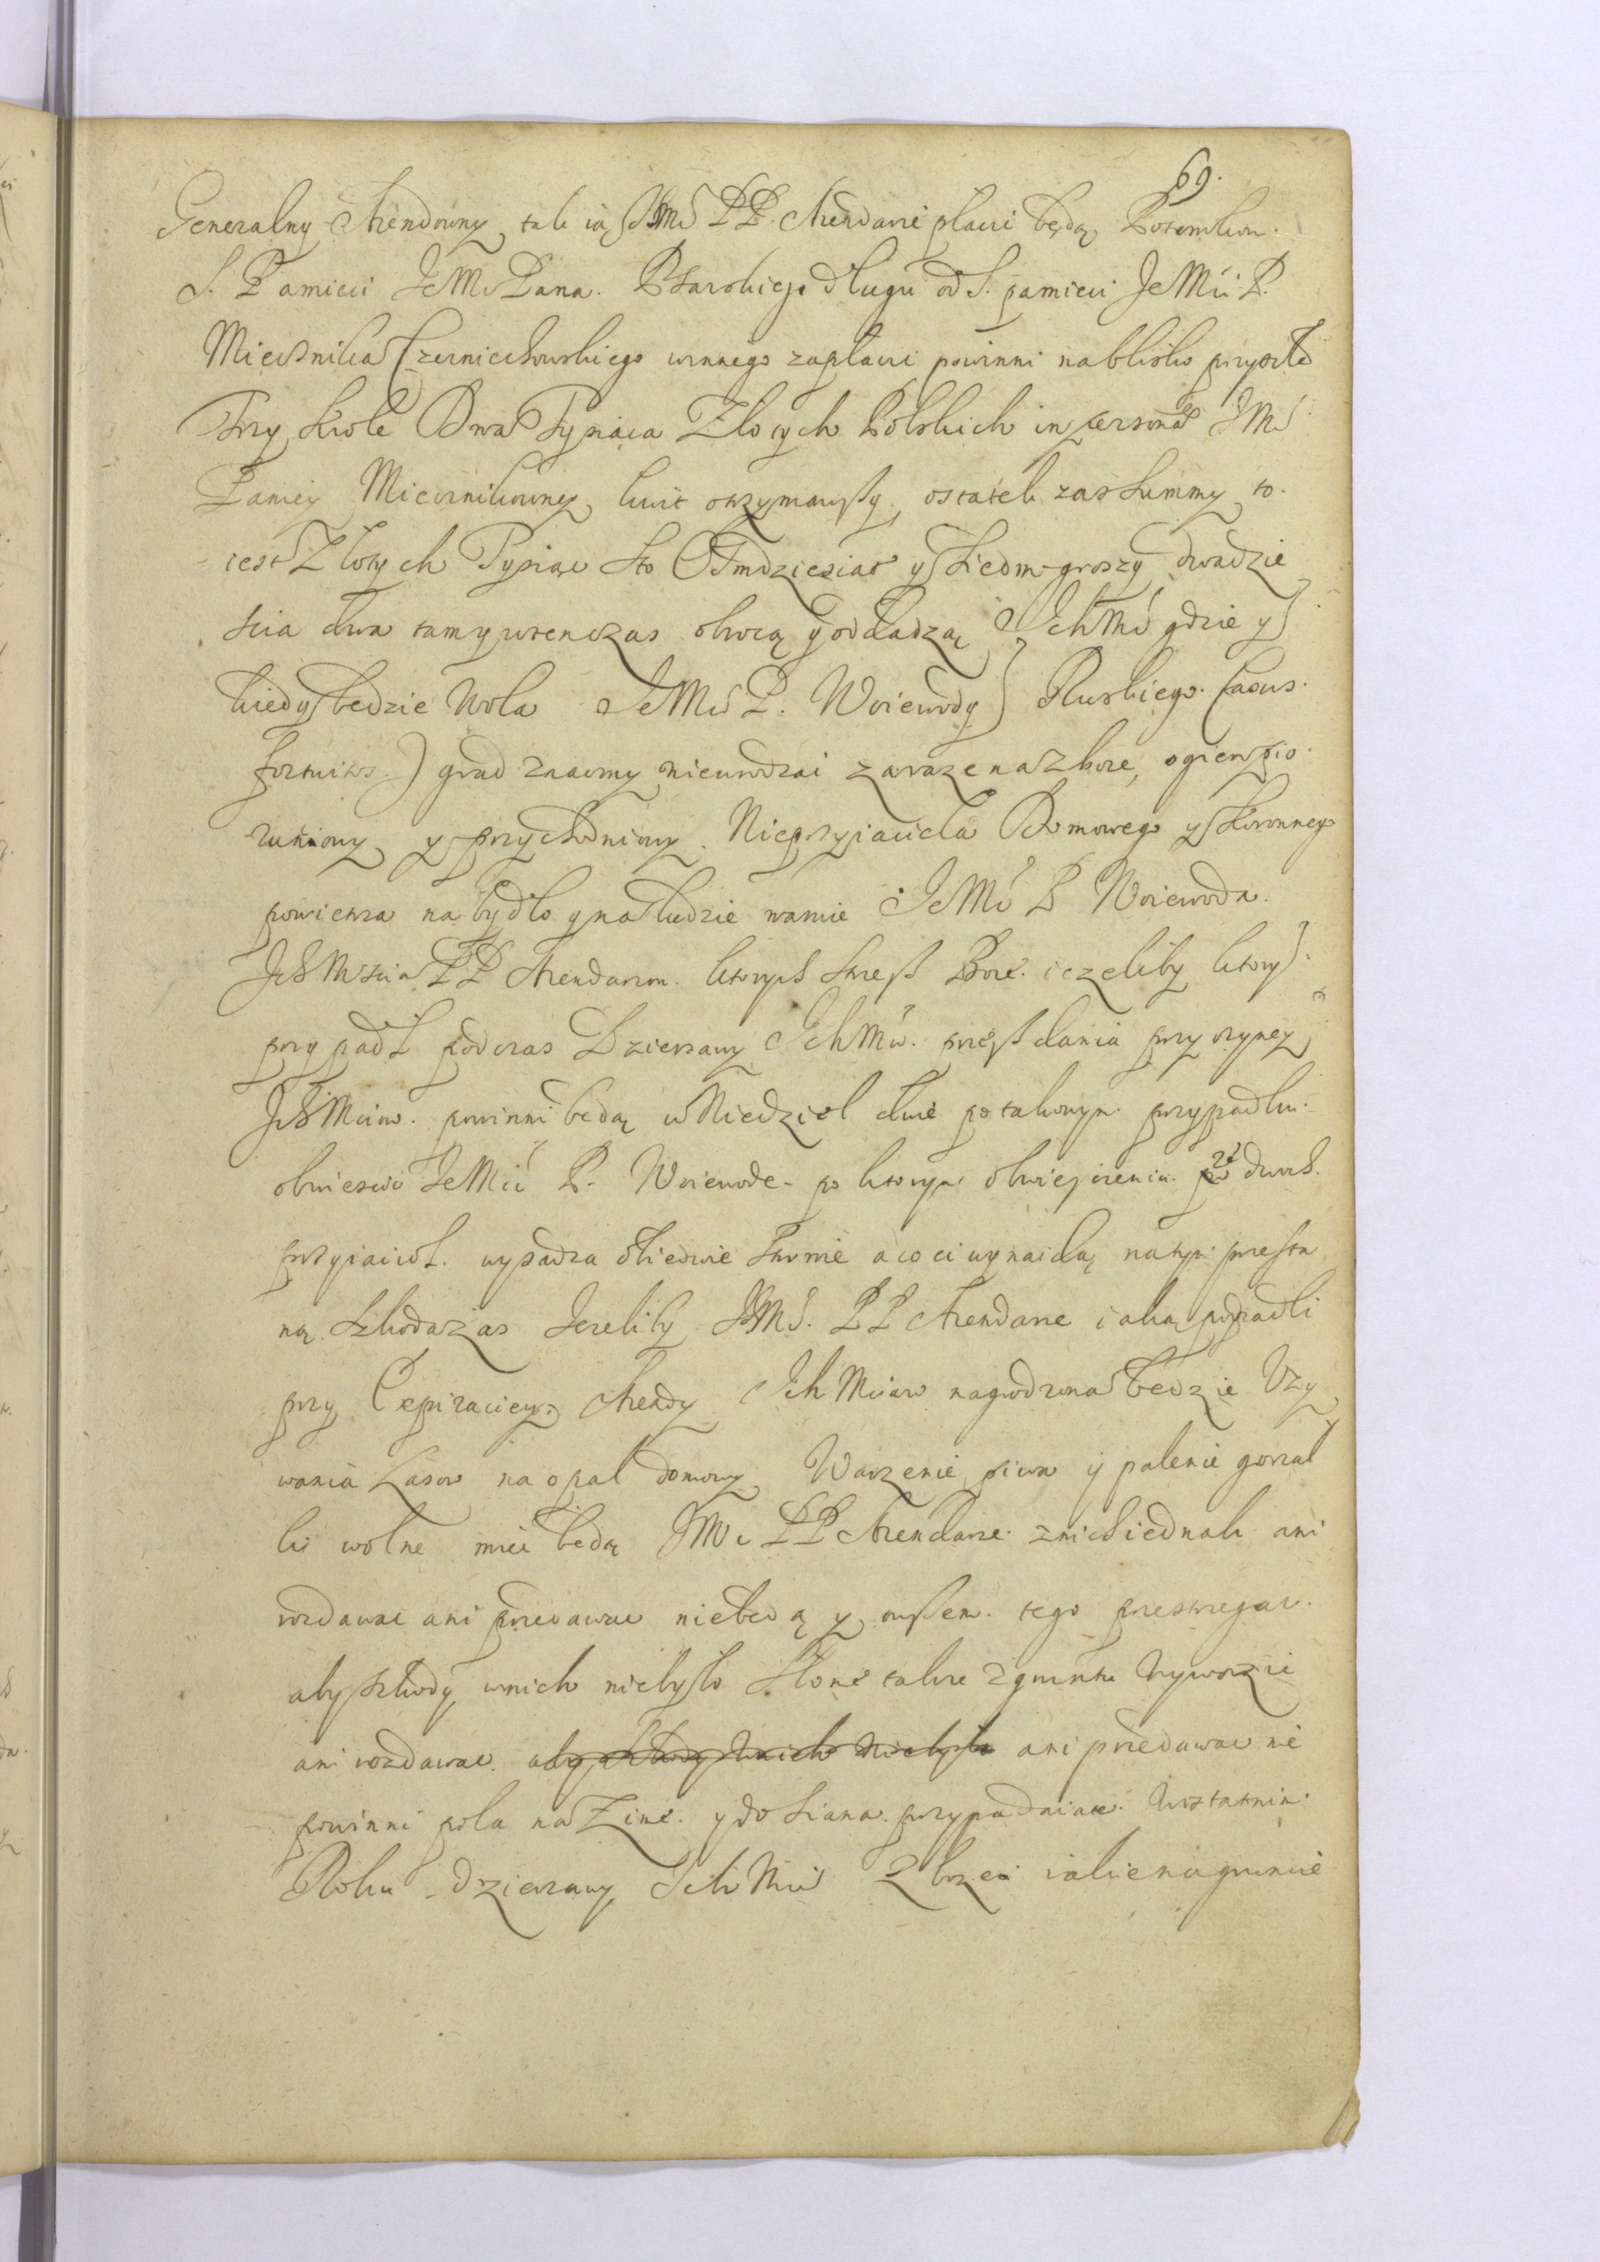 69.
Generalny Arendowny, tak ią JchMć PP. Arendarze płacić będą Potomkom.
S. Pamieci JeMci Pana. Psarskiego długu od S. pamieci JeMći P.
Miecznika Czerniechowskiego winnego zapłacić powinni na blisko przyszłe
Trzy Krole Dwa Tysiąca Złotych Polskich in persona JMć
Paniey Miecznikowney, kwit otrzymawszy, ostatek zas Summy to.
iest Złotych Tysiąc sto Osmdziesiat y siedm groszy dwadzie
scia dwa tam y wtenczas obrocą y oddadzą JchMć gdzie y
kiedy bedzie Wola JeMci P. Woiewody Ruskiego. Casus.
fortuitos.) grad znaczny nieurodzai zaraze na zboze, ogien pio
runowy y przychodniowy. Nieprzyiaciela Domowego y Koronnego
powietrza na bydło y na ludzie warnie JeMć P Woiewoda.
JchMsciom PP Arendarzom. ktorych strzesz Boze. iezeliby ktory
przypadł podczas Dzierzawy JchMćw. precz dania przyczyney
JchMciow. powinni będą w Niedziel dwie po takowym. przypadku.
obwiescic JeMći P. Woiewode. po ktorym obwiesczeniu. po 2ch dwuch.
przyiacioł. wysadza obiedwie stronie a co ci wynaidą na tym przesta
ną. szkoda zas Jezeliby JchMć. PP Arendarze iaką popadli
przy Expiraciey Arendy JchMciow nagrodzona będzie Uzy
wania Lasow na opał domowy, Warzenie piwa y palenie gorzał
ki wolne miec będą JMć PP Arendarze. z nich iednak ani
rozdawac ani przedawac niebędą y owszem. tego przestrzegac.
aby szkody w nich niebyło Słome także z gruntu Wywozic
ani rozdawac. aby szkody w nich niebyło ani przedawac nie
powinni pola na Zime. y do siana. przypadaiace. W ostatnim.
Roku dzierzawy JchMć Zboze iakie na gruncie